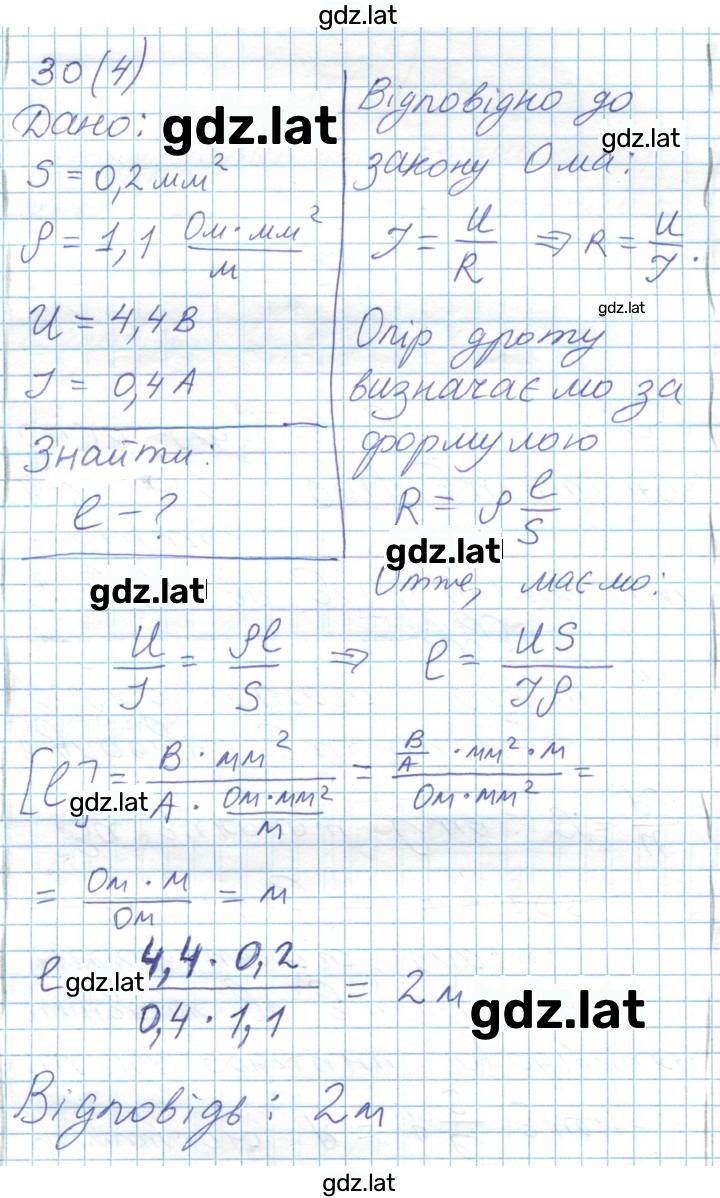 gdz.lat
30(4)
Дано:
gdz.lat
S = 0,2 мм²
ρ = 1,1 Ом·мм²/м
U = 4,4 В
I = 0,4 А
Знайти:
l - ?
Відповідно до
gdz.lat
закону Ома:
I = U/R ⇒ R = U/I.
gdz.lat
Опір дроту
визначаємо за
формулою
R = ρ l/S
gdz.lat
Отже, маємо:
gdz.lat
U/I = ρl/S ⇒ l = US/Iρ
[l] = В·мм²/(А·Ом·мм²/м) = (В/А·мм²·м)/(Ом·мм²) =
gdz.lat
= Ом·м/Ом = м
l gdz.lat 4,4·0,2/0,4·1,1 = 2 м
gdz.lat
Відповідь: 2 м
gdz.lat